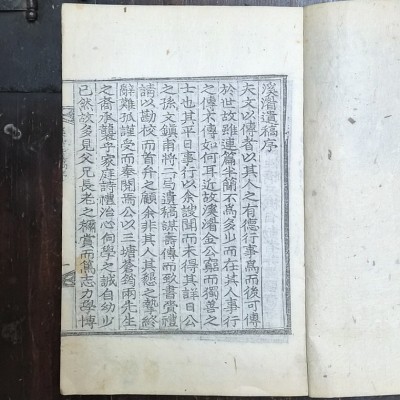 溪潛遺稿序
夫文以傳者以其人之有德行事爲而後可傳
於世故雖連篇半簡不爲多少而在其人事行
之傳不傳如何耳近故溪潛金公窮而獨善之
士也其平日事行以余謏聞而未得其詳日公
之孫文鎭甫將二局遺稿謀壽傳而致書賞禮
請以勘校而首弁之顧余非其人其懇之摯終
辭難孤謹受而奉閱焉公以三塘蒼筠兩先生
之裔承襲乎家庭詩禮治心向學之誠自幼少
已然故多見父兄長老之稱賞而篤志力學博